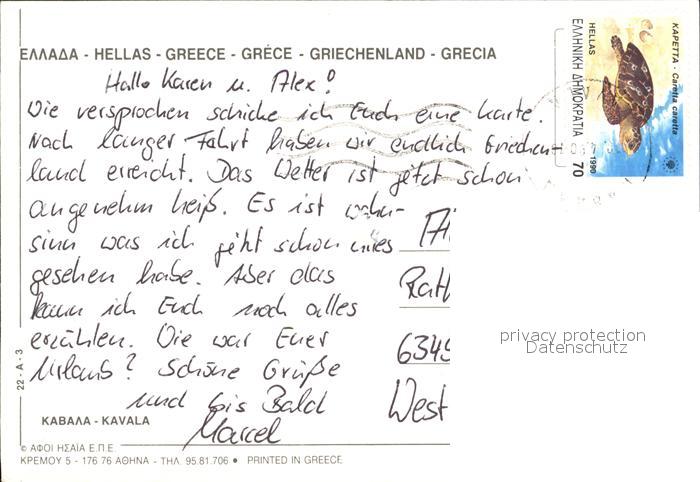 ΕΛΛΑΔΑ - HELLAS - GREECE - GRÉCE - GRIECHENLAND - GRECIA
Hallo Karen u. Alex!
Wie versprochen schicke ich Euch eine Karte.
Nach langer Fahrt haben wir endlich Griechen-
land erreicht. Das Wetter ist jetzt schon
angenehm heiß. Es ist wahn-
sinn was ich jetzt schon alles
gesehen habe. Aber das
kann ich Euch noch alles
erzählen. Wie war Euer
Urlaub? Schöne Grüße
und bis Bald
Marcel
Rath
6345
West
22 - A - 3
ΚΑΒΑΛΑ - KAVALA
© ΑΦΟΙ ΗΣΑΪΑ Ε.Π.Ε.
ΚΡΕΜΟΥ 5 - 176 76 ΑΘΗΝΑ - ΤΗΛ. 95.81.706 • PRINTED IN GREECE
ΚΑΡΕΤΤΑ · Caretta caretta
HELLAS
ΕΛΛΗΝΙΚΗ ΔΗΜΟΚΡΑΤΙΑ
1990
70
privacy protection
Datenschutz